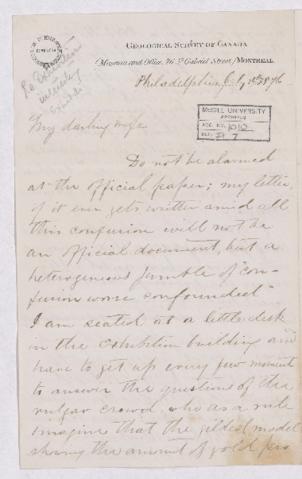 GEOLOGICAL SURVEY OF CANADA
(Museum and Office, 76 St Gabriel Street) MONTREAL
Philadelphia, 1876
McGILL UNIVERSITY
ARCHIVES
ACC. NO. 1010
REF. 7
Re Exhibition
My darling wife
Do not be alarmed
at the official paper; my letter,
if it ever gets written amid all
this confusion will not be
an official document, but a
heterogeneous jumble of "con-
fusion worse confounded"
I am seated at a little desk
in the exhibition building and
have to get up every few moments
to answer the questions of the
vulgar crowd, who as a rule
imagine that the gilded model
showing the amount of gold pro